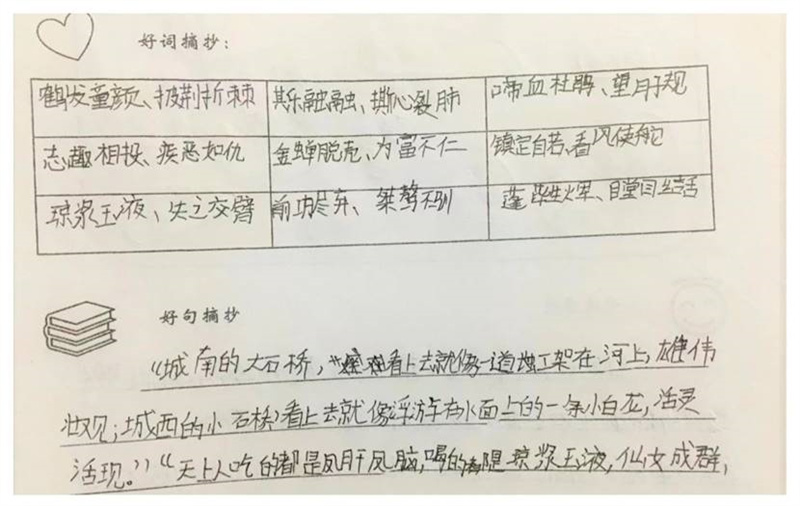 好词摘抄：
鹤发童颜、披荆折棘 其乐融融、撕心裂肺 啼血杜鹃、望月子规
志趣相投、疾恶如仇 金蝉脱壳、为富不仁 镇定自若、看风使舵
琼浆玉液、失之交臂 前功尽弃、桀骜不驯 蓬 目瞪口结舌
好句摘抄
“城南的大石桥，看上去就像一道虹架在河上，雄伟
壮观；城西的小石桥，看上去就像浮游在水面上的一条小白龙，活灵
活现。”“天上人吃的都是凤肝凤脑，喝的都是琼浆玉液，仙女成群，